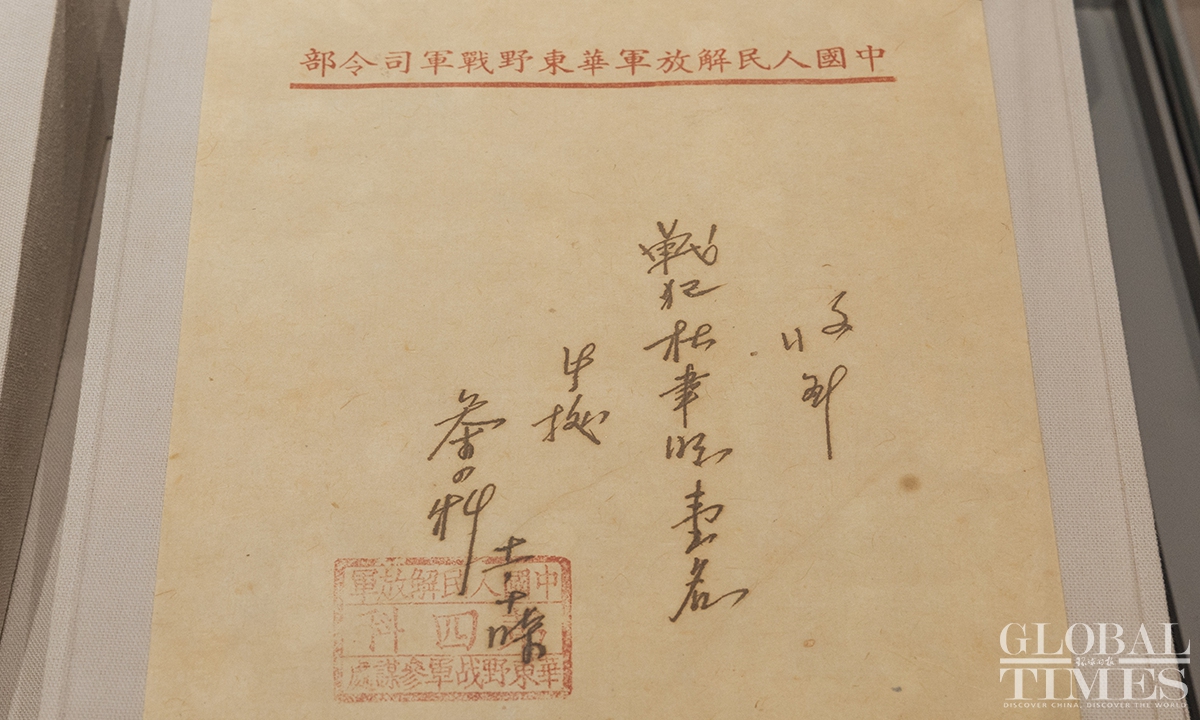 中國人民解放軍華東野戰軍司令部
收到
戰犯杜聿明壹名
此據
參四科
中國人民解放軍
第四科
華東野战軍參謀處
GLOBAL
TIMES
DISCOVER CHINA, DISCOVER THE WORLD